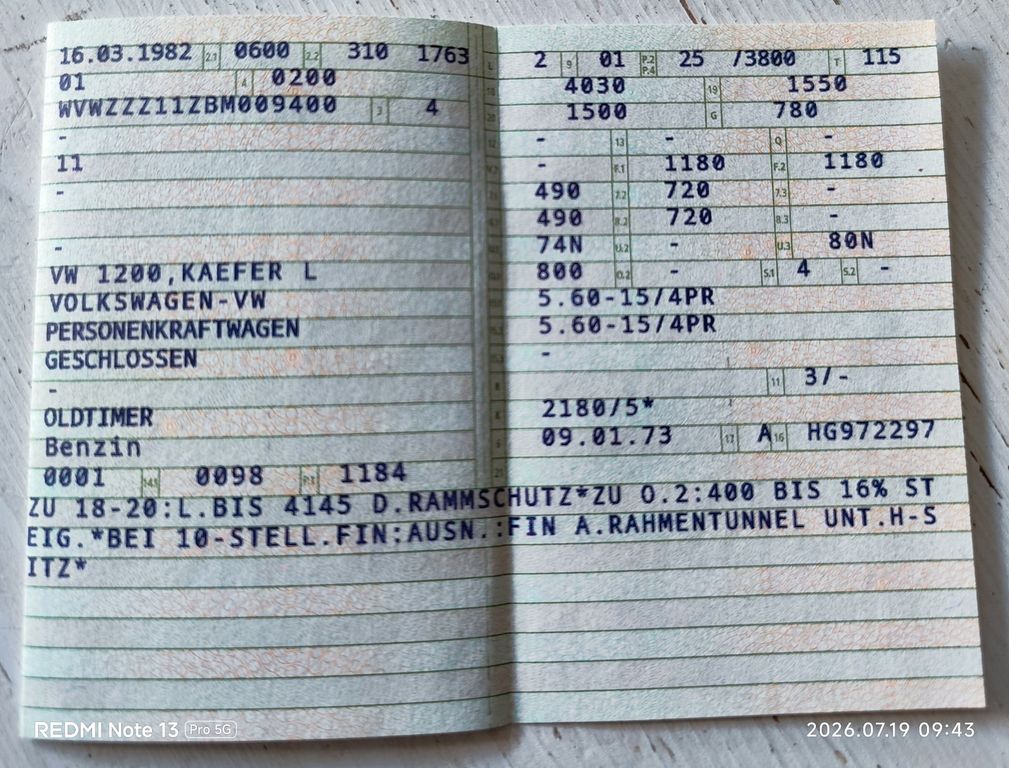 16.03.1982 2.1 0600 2.2 310 1763
01 4 0200
WVWZZZ11ZBM009400 3 4
-
11
-
-
VW 1200,KAEFER L
VOLKSWAGEN-VW
PERSONENKRAFTWAGEN
GESCHLOSSEN
-
OLDTIMER
Benzin
0001 14.1 0098 P.1 1184
L 2 9 01 P.2 P.4 25 /3800 T 115
18 4030 19 1550
20 1500 G 780
12 - 13 - Q -
- F.1 1180 F.2 1180
490 7.2 720 7.3 -
490 8.2 720 8.3 -
74N U.2 - U.3 80N
800 O.2 - S.1 4 S.2 -
5.60-15/4PR
5.60-15/4PR
-
R 11 3/-
K 2180/5*
6 09.01.73 17 A 16 HG972297
21
ZU 18-20:L.BIS 4145 D.RAMMSCHUTZ*ZU O.2:400 BIS 16% ST
EIG.*BEI 10-STELL.FIN:AUSN.:FIN A.RAHMENTUNNEL UNT.H-S
ITZ*
REDMI Note 13 Pro 5G
2026.07.19 09:43